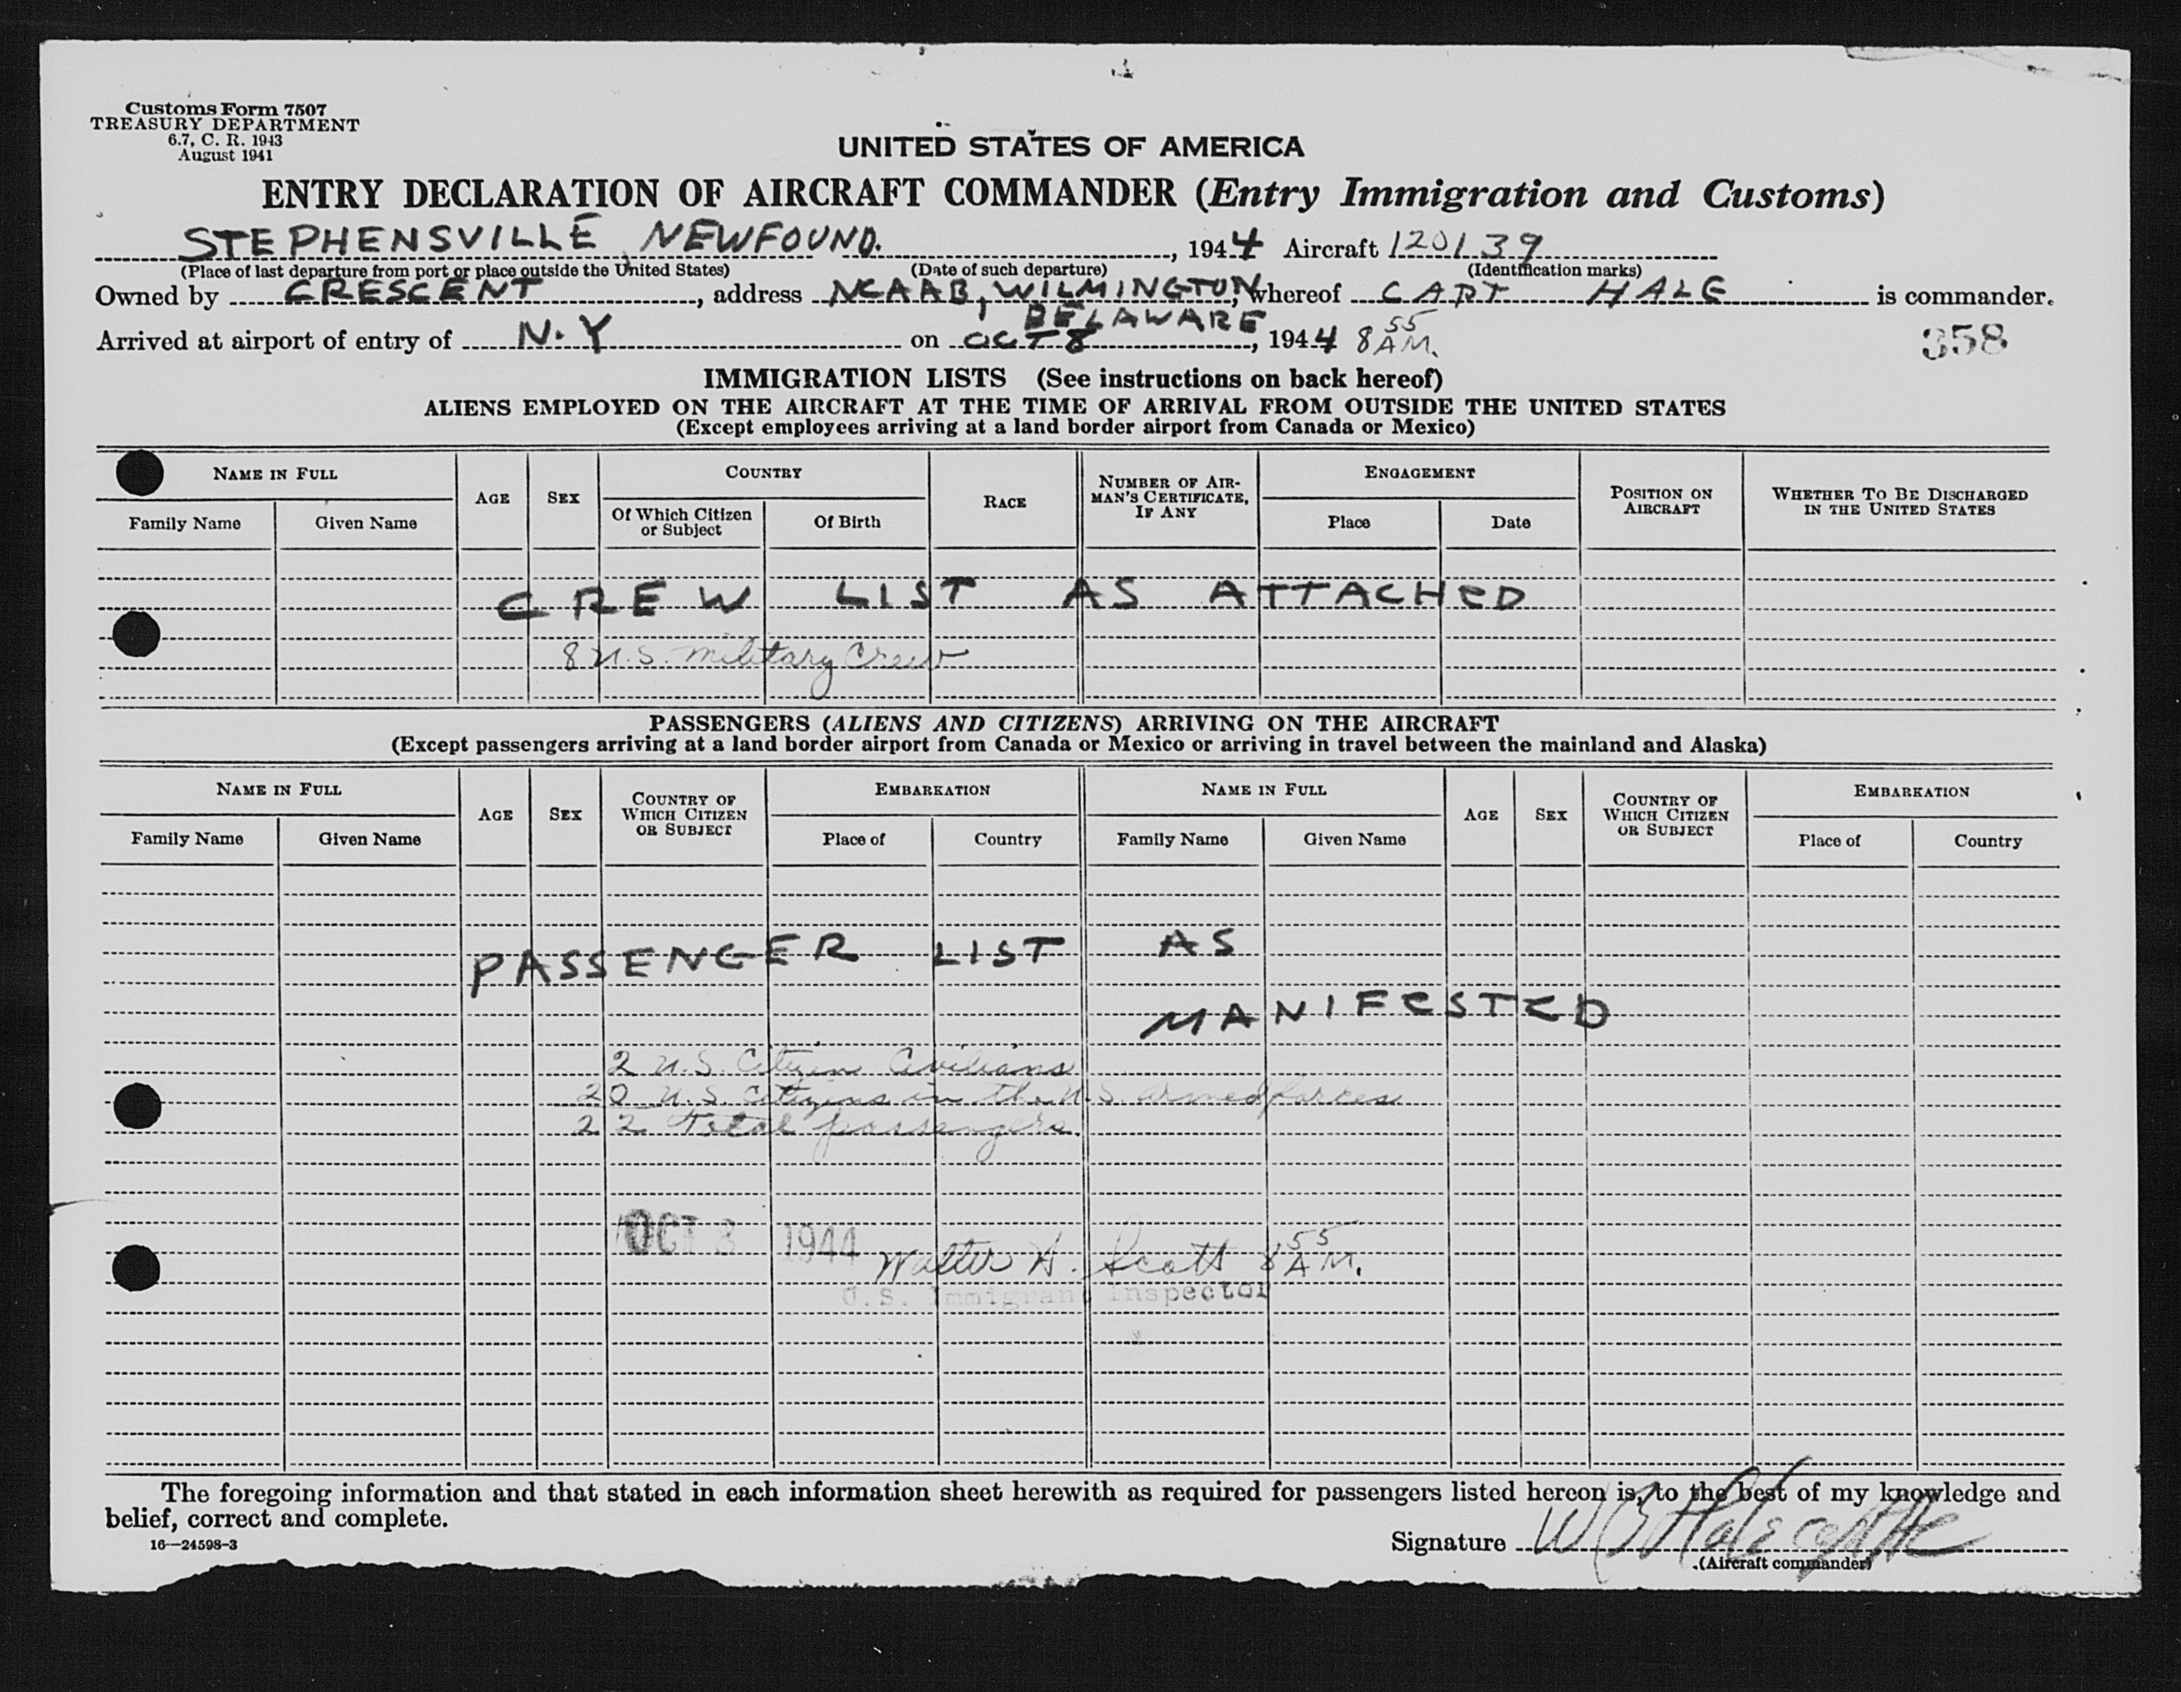 Customs Form 7507
TREASURY DEPARTMENT
6.7, C. R. 1943
August 1941
UNITED STATES OF AMERICA
ENTRY DECLARATION OF AIRCRAFT COMMANDER (Entry Immigration and Customs)
STEPHENSVILLE, NEWFOUND. , 1944 Aircraft 120139
(Place of last departure from port or place outside the United States) (Date of such departure) (Identification marks)
Owned by CRESCENT, address NCAAB, WILMINGTON, whereof CAPT HALE is commander.
DELAWARE
Arrived at airport of entry of N.Y on OCT 8, 1944 8 55 A.M.
358
IMMIGRATION LISTS (See instructions on back hereof)
ALIENS EMPLOYED ON THE AIRCRAFT AT THE TIME OF ARRIVAL FROM OUTSIDE THE UNITED STATES
(Except employees arriving at a land border airport from Canada or Mexico)
NAME IN FULL
Family Name
Given Name
AGE
SEX
COUNTRY
Of Which Citizen or Subject
Of Birth
RACE
NUMBER OF AIRMAN'S CERTIFICATE, IF ANY
ENGAGEMENT
Place
Date
POSITION ON AIRCRAFT
WHETHER TO BE DISCHARGED IN THE UNITED STATES
CREW LIST AS ATTACHED
8 U.S. military Crew
PASSENGERS (ALIENS AND CITIZENS) ARRIVING ON THE AIRCRAFT
(Except passengers arriving at a land border airport from Canada or Mexico or arriving in travel between the mainland and Alaska)
NAME IN FULL
Family Name
Given Name
AGE
SEX
COUNTRY OF WHICH CITIZEN OR SUBJECT
EMBARKATION
Place of
Country
NAME IN FULL
Family Name
Given Name
AGE
SEX
COUNTRY OF WHICH CITIZEN OR SUBJECT
EMBARKATION
Place of
Country
PASSENGER LIST AS
MANIFESTED
2 U.S. Citizen Civilians
20 U.S. Citizens in the U.S. armed forces
22 Total passengers
OCT 8 1944
Walter A. Scott 8 55 A.M.
U.S. Immigrant Inspector
The foregoing information and that stated in each information sheet herewith as required for passengers listed hereon is, to the best of my knowledge and
belief, correct and complete.
16—24598-3
Signature W B Hale
(Aircraft commander)